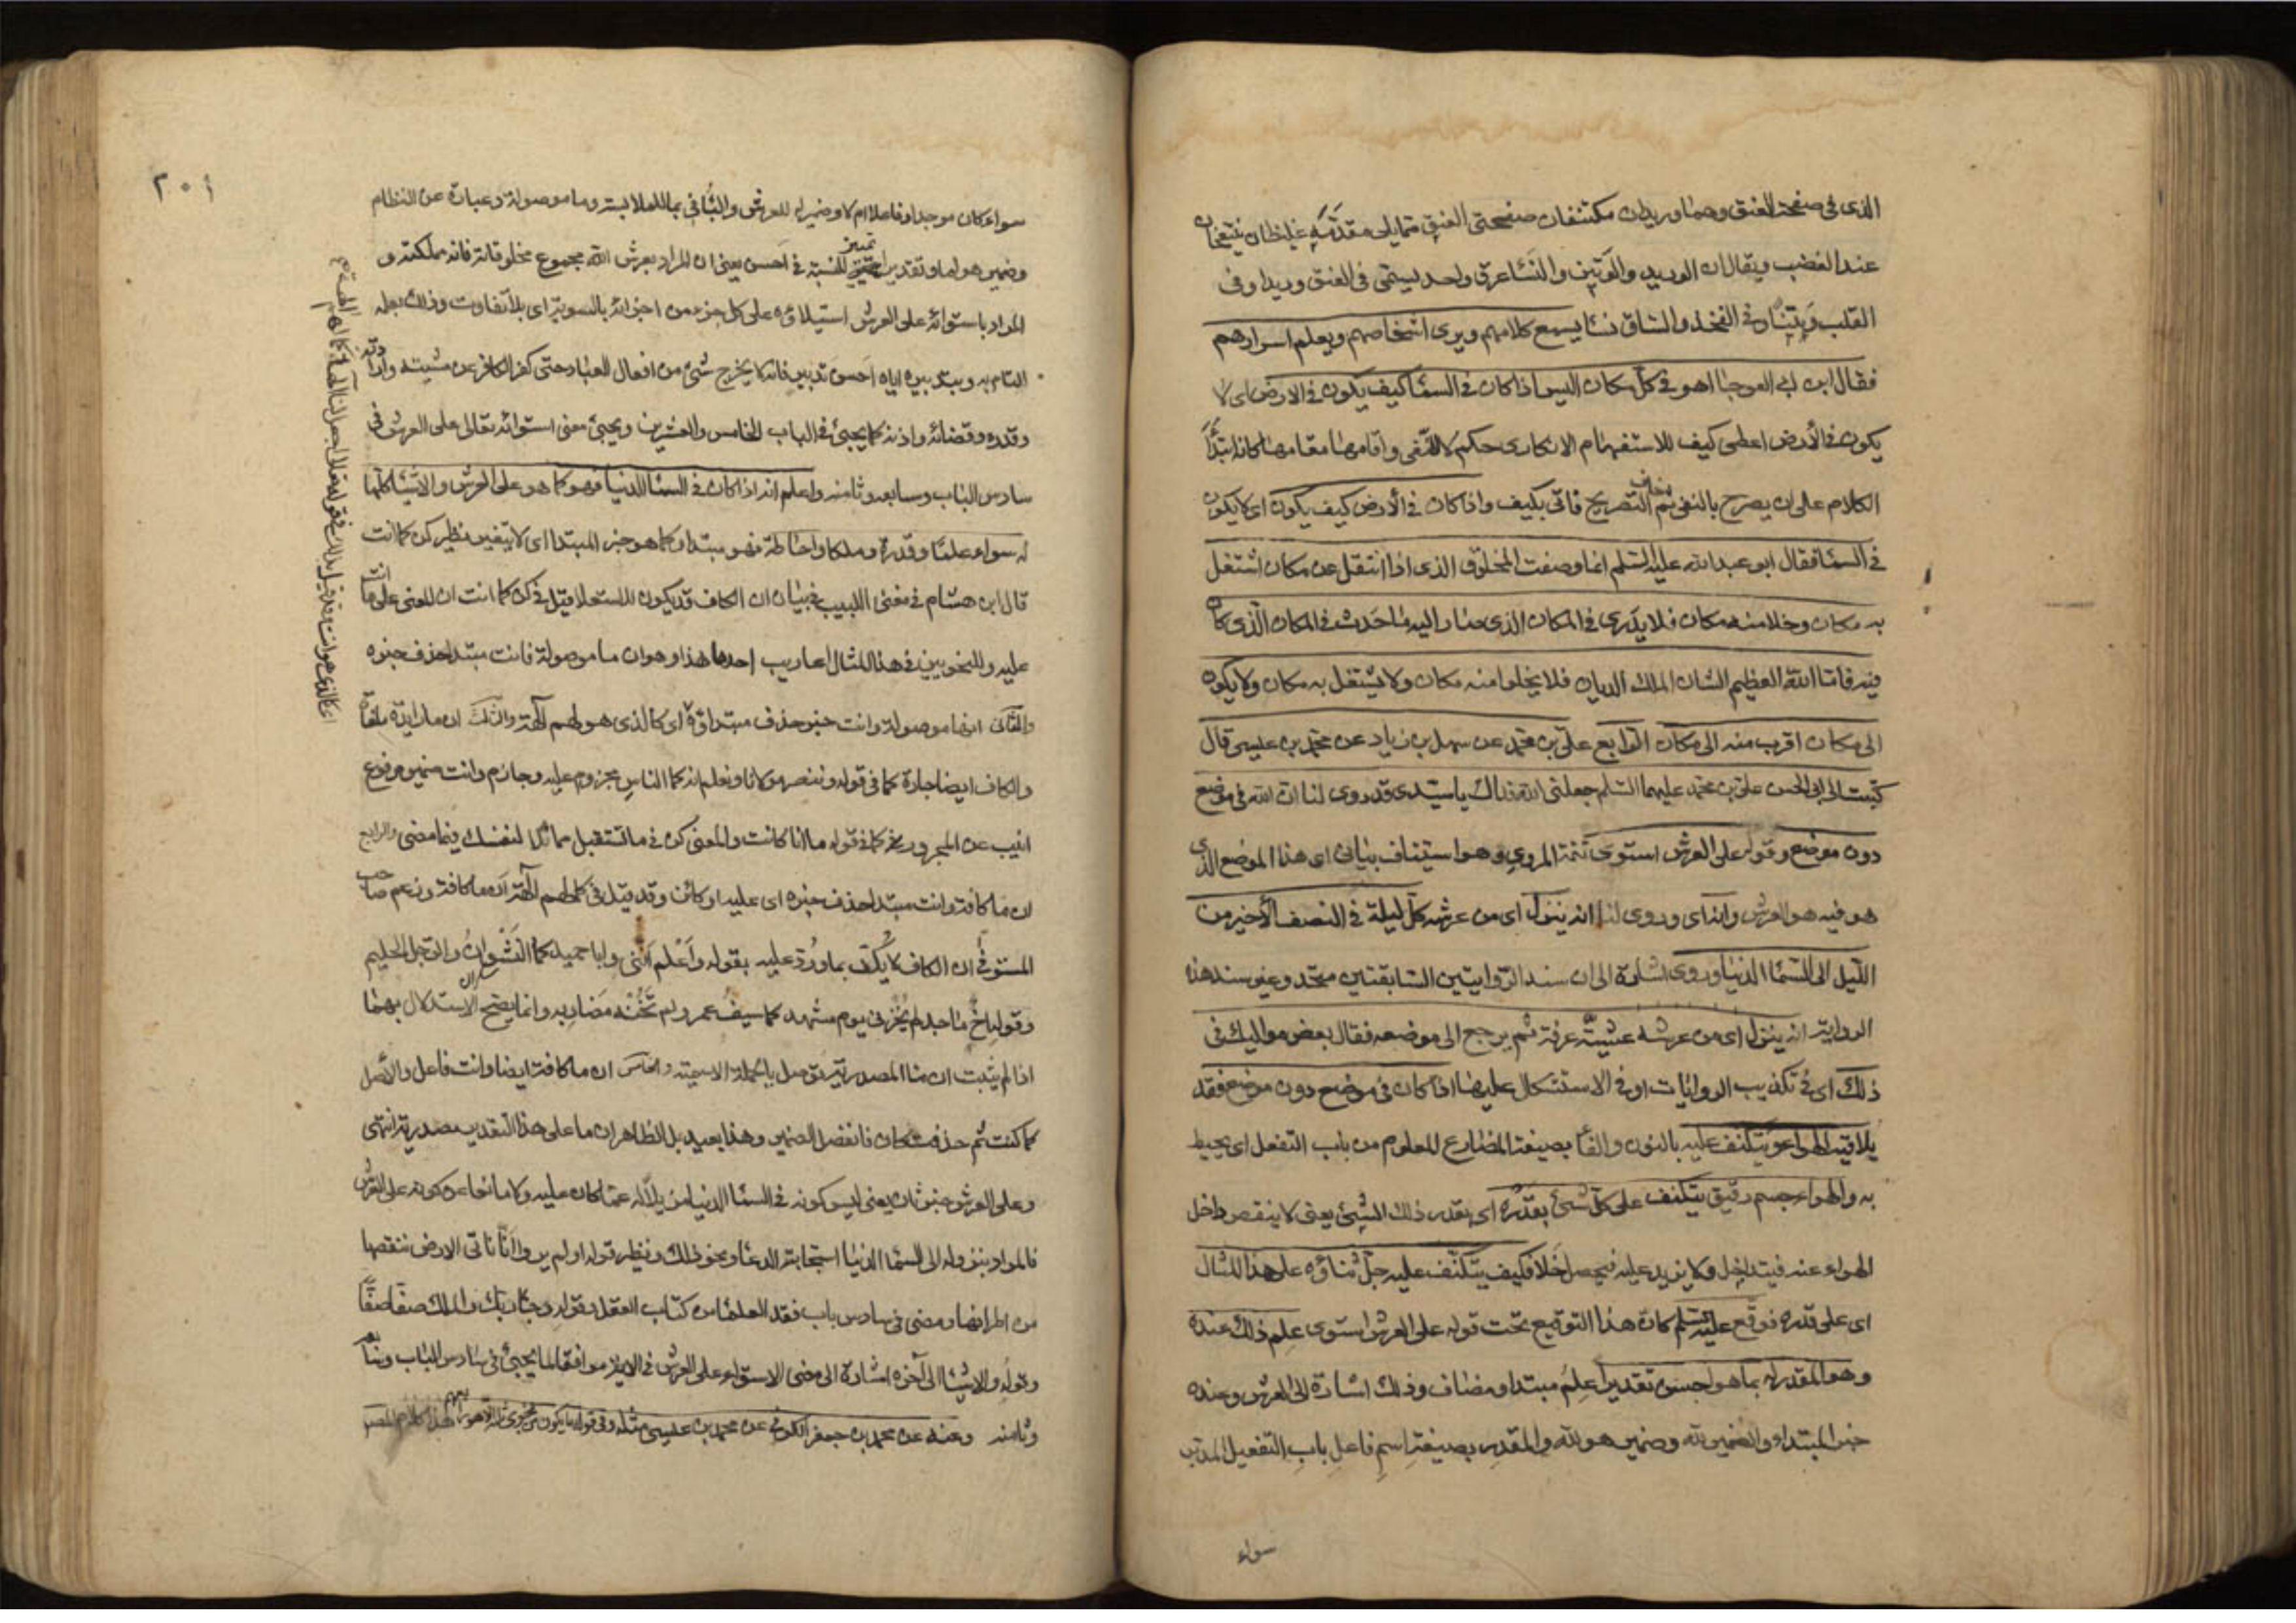 الذى فى صفحة العنق وهما وريدان مكتنفان صفحتى العنق مما يلى مقدّمه غليظان ينتفخان
عند الغضب ويقال ان الوريد والوتين والنسا عرق واحد يسمّى فى العنق وريدا وفى
القلب وتينا وفى الفخذ والساق نسا يسمع كلامهم ويرى اشخاصهم ويعلم اسرارهم
فقال ابن ابى العوجا اهو فى كل مكان اليس اذا كان فى السما كيف يكون فى الارض اى لا
يكون فى الأرض اعطى كيف للاستفهام الانكارى حكم لا للنفى واقامها مقامها كانه ابتدأ
الكلام على ان يصرح بالنفى ثم التصريح فاتى بكيف واذا كان فى الأرض كيف يكون اى لا يكون
فى السما فقال ابو عبد الله عليه السلم انما وصفت المخلوق الذى اذا انتقل عن مكان اشتغل
به مكان وخلا منه مكان فلا يدرى فى المكان الذى صار اليه ما حدث فى المكان الذى كان
فيه فامّا الله العظيم الشان الملك الديان فلا يخلو امنه مكان ولا يشتغل به مكان ولا يكون
الى مكان اقرب منه الى مكان الرابع على بن محمد عن سهل بن زياد عن محمد بن عيسى قال
كتبت الى ابى الحسن على بن محمد عليهما السلم جعلنى الله فداك يا سيدى قد روى لنا ان الله فى موضع
دون موضع وقوله على العرش استوى تتمة المروى وهو استيناف بيانى اى هذا الموضع الذى
هو فيه هو العرش وانه اى وروى لنا انه ينزل اى من عرشه كل ليلة فى النصف الأخير من
الليل الى السما الدنيا وروى اشارة الى ان سند الروايتين السابقتين متحد وغير سند هذه
الرواية انه ينزل اى من عرشه عشيّة عرفة ثم يرجع الى موضعه فقال بعض مواليك فى
ذلك اى فى تكذيب الروايات او فى الاستشكال عليها اذا كان فى موضع دون موضع فقد
يلاقيه الهواء ويتكنف عليه بالنون والفا بصيغة المضارع المعلوم من باب التفعل اى يحيط
به والهواء جسم رقيق يتكنف على كل شئ بقدره اى بقدر ذلك الشئ يعنى لا ينقص داخل
الهواء عنه فيتداخل ولا يزيد عليه فيحصل خلا فكيف يتكنف عليه جلّ ثناؤه على هذا المثال
اى على قدره فوقّع عليه السلم كان هذا التوقيع تحت قوله على العرش استوى علم ذلك عنده
وهو المقدر له بما هو احسن تقديرا علم مبتدا ومضاف وذلك اشارة الى العرش وعنده
خبر المبتداء والضمير لله وضمير هو لله والمقدر بصيغة اسم فاعل باب التفعيل المدبّر
سواء
٢٠١
سواء كان موجدا وفاعلا ام لا وضمير له للعرش والبا فى بما للملابسة وما موصولة وعبارة عن النظام
وضمير هو لما وتقديرا تمييز للنسبة فى احسن يعنى ان المراد بعرش الله مجموع مخلوقاته فانه مملكته و
المراد باستوائه على العرش استيلاؤه على كل جزء من اجزائه بالسوية اى بلا تفاوت وذلك بعلمه
التام به وبتدبيره اياه احسن تدبير فانه لا يخرج شئ من افعال العباد حتى كفر الكافر عن مشيته وارادته
وقدره وقضائه واذنه كما يجيئ فى الباب الخامس والعشرين ويجيئ معنى استوائه تعالى على العرش فى
سادس الباب وسابعه وثامنه واعلم انه اذا كان فى السما الدنيا فهو كما هو على العرش والاشيا كلها
له سواء علما وقدرة وملكا واحاطة فهو مبتدا وكما هو خبر المبتدا اى لا يتغير نظير كن كما انت
قال ابن هشام فى مغنى اللبيب فى بيان ان الكاف قد يكون للاستعلا قيل فى كن كما انت ان المعنى على ما انت
عليه وللنحويين فى هذا المثال اعاريب احدها هذا وهو ان ما موصولة فانت مبتدا حذف خبره
والثانى انها موصولة وانت خبر حذف مبتداؤه اى كالذى هو لهم آلهة والثالث ان ما زايدة ملغاة
والكاف ايضا جارة كما فى قوله وننصر مولانا ونعلم انه كما الناس مجروم عليه وجارم وانت ضمير مرفوع
انيب عن المجرور كما فى قوله ما انا كانت والمعنى كن فى ما تستقبل مماثلا لنفسك فيما مضى والرابع
ان ما كافة وانت مبتدا حذف خبره اى عليه او كائن وقد قيل فى كما لهم آلهة ان ما كافة وزعم صاحب
المستوفى ان الكاف لا يكفّ بما ورُدّ عليه بقوله واعلم اننى وابا حميد كما النشوان والرجل الحليم
وقوله اخ ماجد لم يخزنى يوم مشهد كما سيف عمرو لم تخنه مضاربه وانما يصح الاستدلال بهما
اذا لم يثبت ان ما المصدرية توصل بالجملة الاسمية والخامس ان ما كافة ايضا وانت فاعل والأصل
كما كنت ثم حذف كان فانفصل الضمير وهذا بعيد بل الظاهر ان ما على هذا التقدير مصدرية انتهى
وعلى العرش خبر ثان يعنى ليس كونه فى السما الدنيا مزيلا له عما كان عليه ولا مانعا عن كونه على العرش
فالمراد بنزوله الى السما الدنيا استجابة الدعا ونحو ذلك ونظير قوله اولم يروا انا ناتى الارض ننقصها
من اطرافها ومضى فى سادس باب فقد العلما من كتاب العقل وقوله وجاء ربك والملك صفا صفّا
وقوله والاشيا الى آخره اشارة الى معنى الاستواء على العرش فى الاية موافقا لما يجيئ فى سادس الباب وسابعه
وثامنه وعنه عن محمد بن جعفر الكوفى عن محمد بن عيسى مثله وفى قوله ما يكون من نجوى ثلاثة الا هو رابعهم هذا كلام المصنف